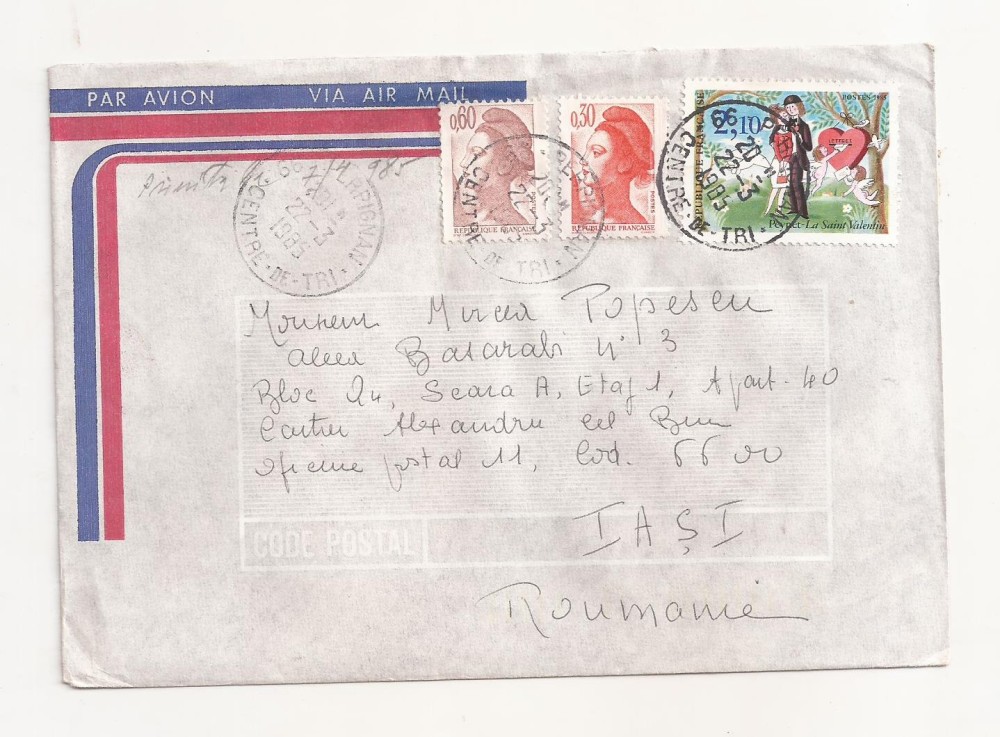 PAR AVION VIA AIR MAIL
0,60
REPUBLIQUE FRANÇAISE
0,30
POSTES
REPUBLIQUE FRANÇAISE
2,10
POSTES
REPUBLIQUE FRANÇAISE
LETTRES
Peynet-La Saint Valentin
66 PERPIGNAN
22-3
1985
CENTRE-DE-TRI
66 PERPIGNAN
22-3
CENTRE-DE-TRI
66 PERPIGNAN
20H
22-3
1985
CENTRE-DE-TRI
985
Monsieur Mircea Popescu
aleea Basarabi n° 3
Bloc 24, Scara A, Etaj 1, Apart. 40
Cartier Alexandru cel Bun
oficiul postal 11, Cod. 6600
IAŞI
CODE POSTAL
Roumanie